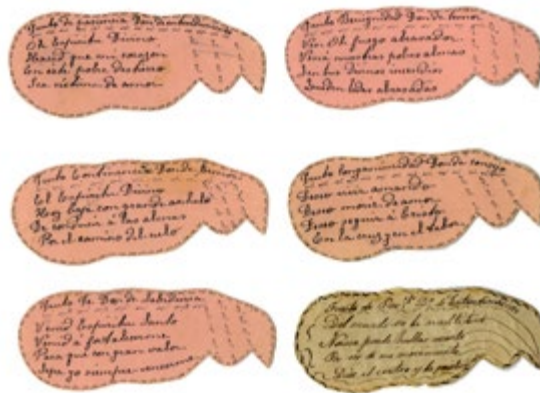 Fruto de paciencia Don de entendimiento
Oh Espiritu Divino
Haced que mi corazon
En este pobre destierro
Sea victima de amor
Fruto Benignidad Don de temor
Ven Oh fuego abrasador
Ven á nuestras pobres almas
incendios
queden todas abrasadas
Fruto Continencia Don de temor
El Espiritu Divino
Hoy baja con grande anhelo
De conducir á las almas
Por el camino del cielo
Fruto Longanimidad Don de consejo
Deseo vivir amando
Deseo morir de amor
Deseo seguir á Cristo
En la cruz y en el
Fruto Fe Don de Sabiduria
Venid Espiritu Santo
Venid á fortalecerme
Para que con gran valor
Sepa yo siempre vencerme
Fruto de Paz Dn de Entendimiento
Del mundo en la
Nunca puede hallar